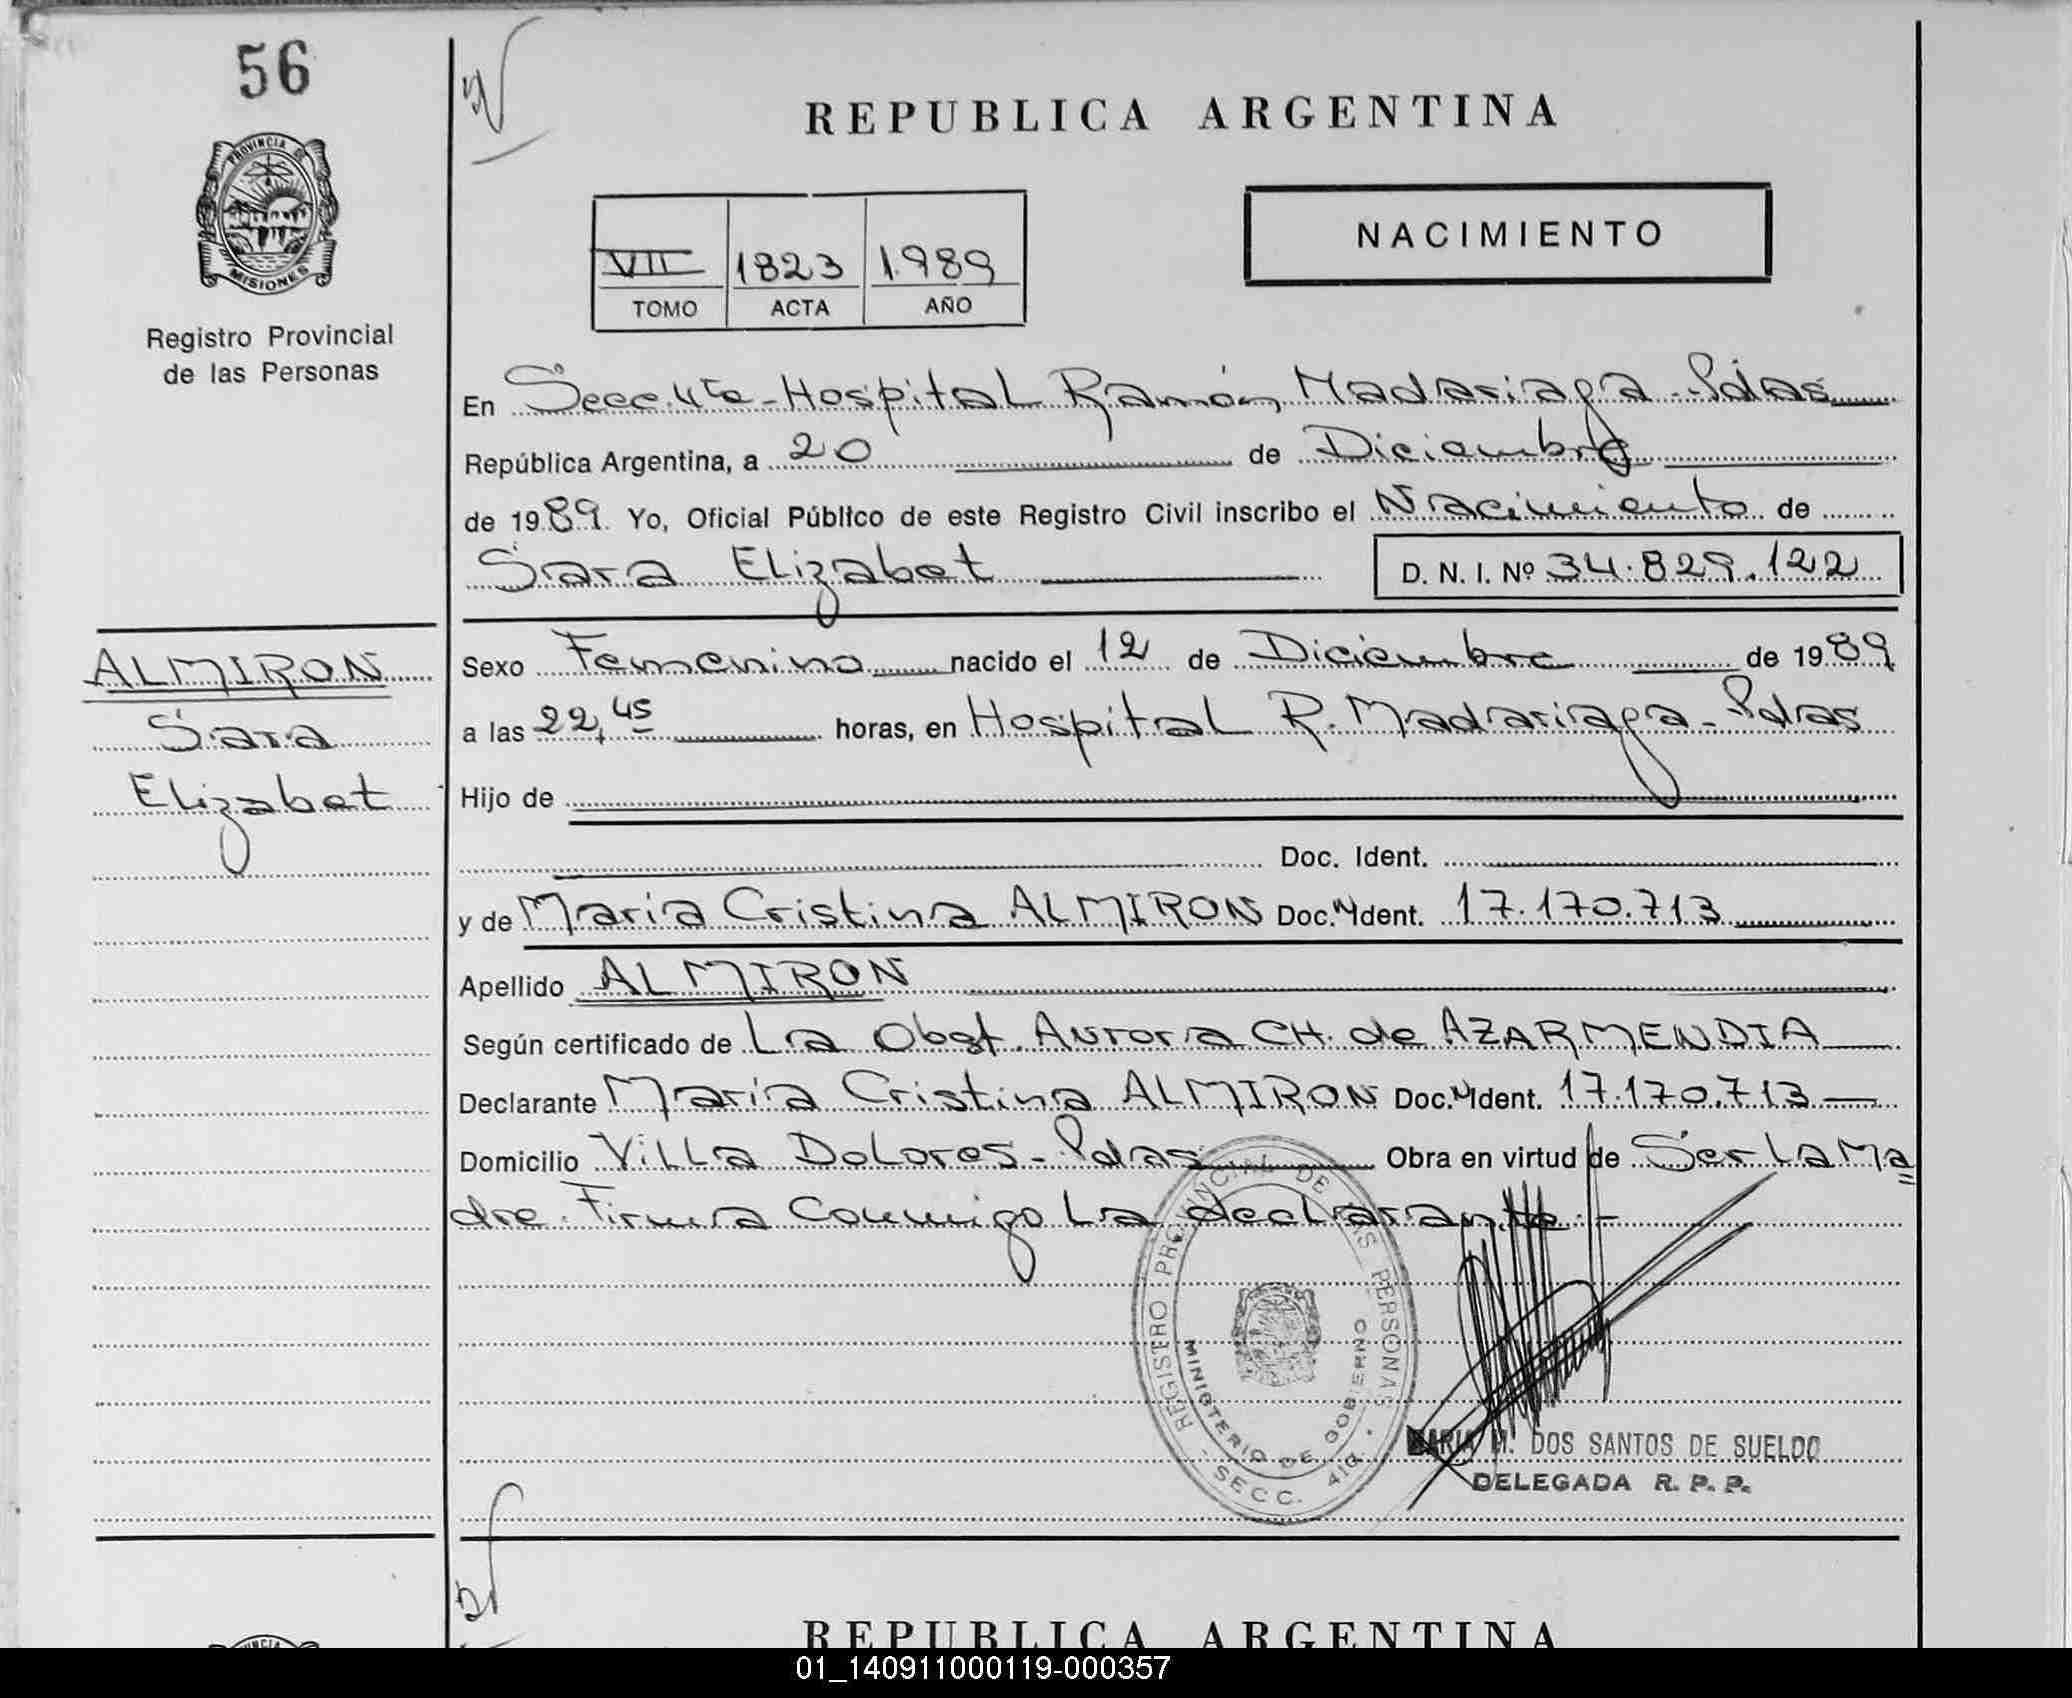 56
PROVINCIA DE
MISIONES
Registro Provincial
de las Personas
REPUBLICA ARGENTINA
NACIMIENTO
VII 1823 1989
TOMO ACTA AÑO
En Secc. 4ta - Hospital Ramón Madariaga - Pdas
República Argentina, a 20 de Diciembre
de 1989. Yo, Oficial Público de este Registro Civil inscribo el Nacimiento de
Sara Elizabet D. N. I. Nº 34.829.122
ALMIRON
Sara
Elizabet
Sexo Femenino nacido el 12 de Diciembre de 1989
a las 22,45 horas, en Hospital R. Madariaga - Pdas
Hijo de
Doc. Ident.
y de Maria Cristina ALMIRON Doc. Ident. 17.170.713
Apellido ALMIRON
Según certificado de La Obst. Aurora CH. de AZARMENDIA
Declarante Maria Cristina ALMIRON Doc. Ident. 17.170.713
Domicilio Villa Dolores - Pdas Obra en virtud de Ser La Ma
dre. Firma Conmigo La declarante.-
REGISTRO PROVINCIAL DE LAS PERSONAS
MINISTERIO DE GOBIERNO
SECC. 4ta.
MARIA M. DOS SANTOS DE SUELDO
DELEGADA R. P. P.
REPUBLICA ARGENTINA
01_140911000119-000357